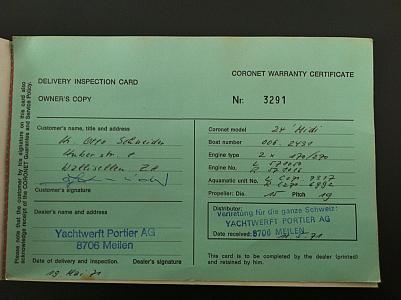 DELIVERY INSPECTION CARD
OWNER'S COPY
CORONET WARRANTY CERTIFICATE
Nr: 3291
Please note that the customer by his signature on this card also
acknowledge receipt of the CORONET Guarantee and Service Policy.
Customer's name, title and address
Hr. Otto Schneider
Wallisellen ZH
Customer's signature
Dealer's name and address
Yachtwerft Portier AG
8706 Meilen
Date of delivery and inspection. Dealer's signature
19 Mai 71
Coronet model 24 Midi
Boat number 006.2431
Engine type 2 x 170/270
Engine No.
Aquamatic unit No.
Propeller: Dia. 15 Pitch 19
Distributor:
Vertretung für die ganze Schweiz:
YACHTWERFT PORTIER AG
Date received: 8706 MEILEN
This card is to be completed by the dealer (printed)
and retained by him.